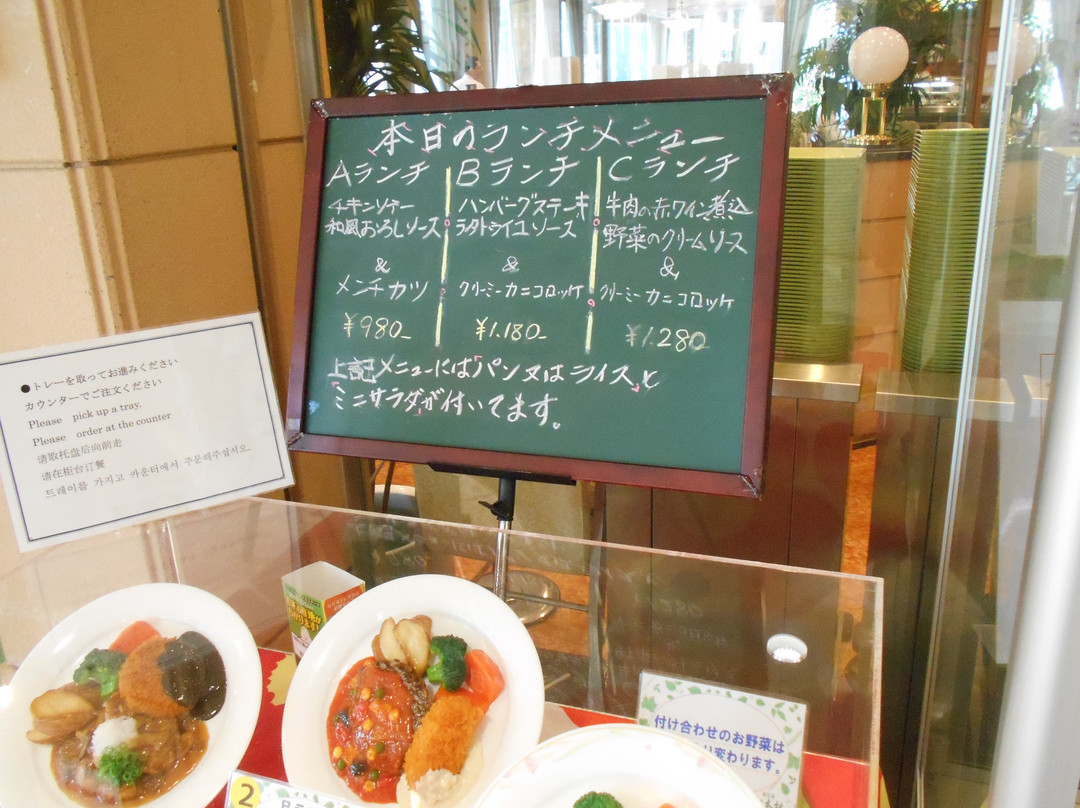 本日のランチメニュー
Aランチ
チキンソテー
和風おろしソース
&
メンチカツ
¥980-
Bランチ
ハンバーグステーキ
ラタトゥイユソース
&
クリーミーカニコロッケ
¥1.180-
Cランチ
牛肉の赤ワイン煮込
野菜のクリームソース
&
クリーミーカニコロッケ
¥1.280-
上記メニューには「パン又はライス」と
「ミニサラダ」が付いてます。
●トレーを取ってお進みください
カウンターでご注文ください
Please pick up a tray.
Please order at the counter
请取托盘后向前走
请在柜台订餐
트레이를 가지고 카운터에서 주문해주십시오.
付け合わせのお野菜は
り変わります。
2
Bラ